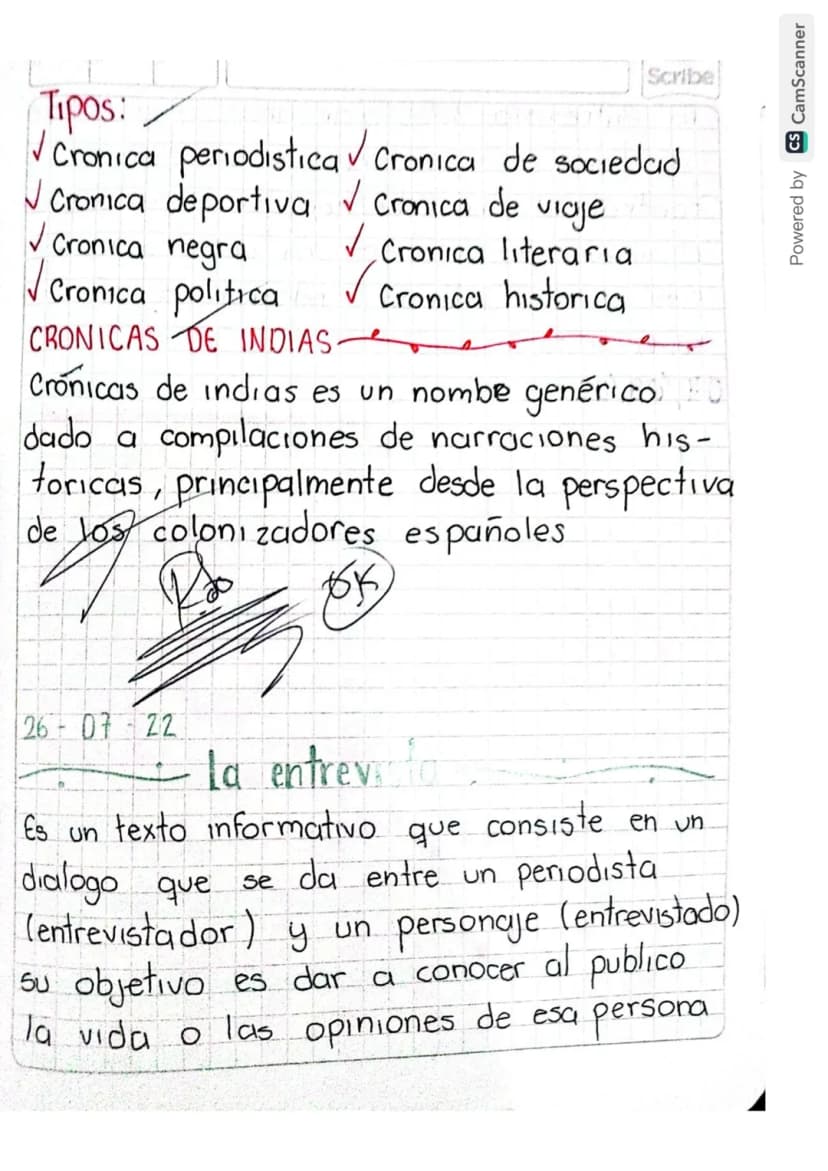 Scribe
Tipos:
✓ Cronica periodistica ✓ Cronica de sociedad
✓ Cronica deportiva ✓ Cronica de viaje
✓ Cronica negra ✓ Cronica literaria
✓ Cronica politica ✓ Cronica historica
CRONICAS DE INDIAS
Crónicas de indias es un nombe genérico
dado a compilaciones de narraciones his-
toricas, principalmente desde la perspectiva
de los colonizadores españoles
OK
26-07-22
La entrevista
Es un texto informativo que consiste en un
dialogo que se da entre un periodista
(entrevistador) y un personaje (entrevistado)
su objetivo es dar a conocer al publico
la vida o las opiniones de esa persona
Powered by CS CamScanner